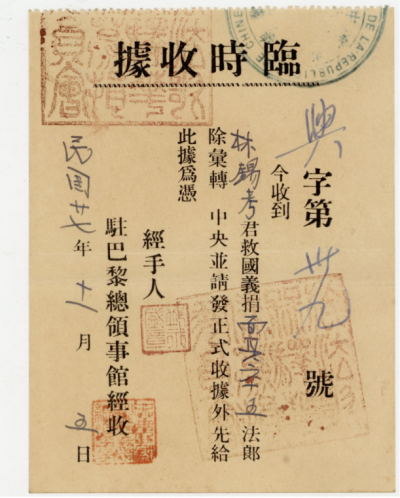 臨時收據
DE LA REPUBLI
興字第卅九號
今收到
林錫考君救國義捐 五法郎
除彙轉 中央並請發正式收據外先給
此據爲憑
經手人
駐巴黎總領事館經收
民國廿七年十一月五日
員會